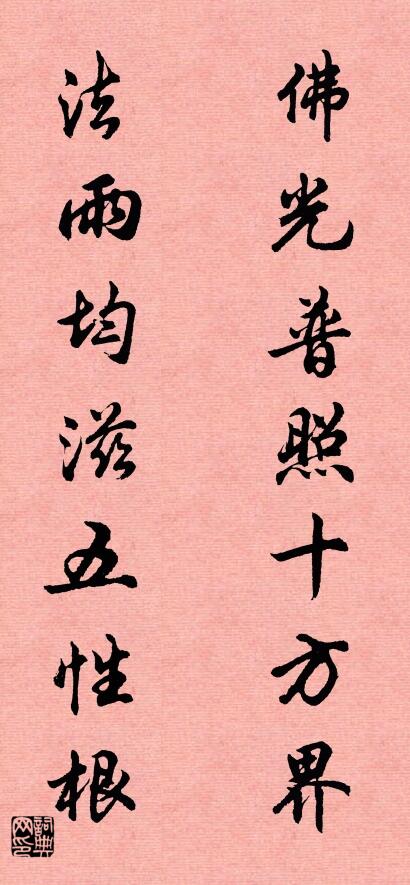 佛光普照十方界
法雨均滋五性根
詞典網印